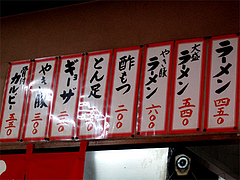 ラーメン
四五〇
大盛
ラーメン
五四〇
やき豚
ラーメン
六〇〇
酢もつ
二〇〇
とん足
ギョーザ
やき豚
三〇〇
骨付
カルビー
五五〇